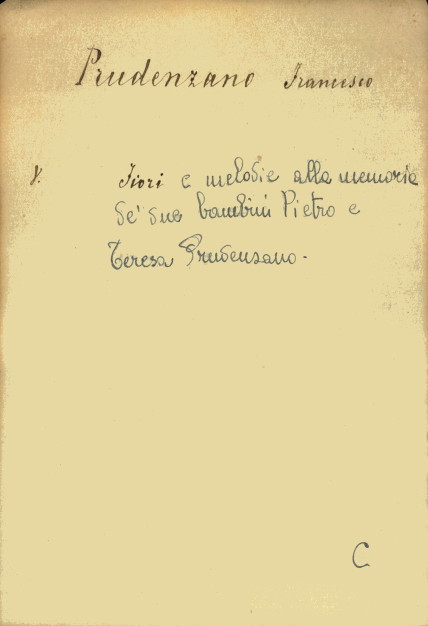 Prudenzano Francesco
V. Fiori e melodie alla memoria
de' due bambini Pietro e
Teresa Prudenzano.
C